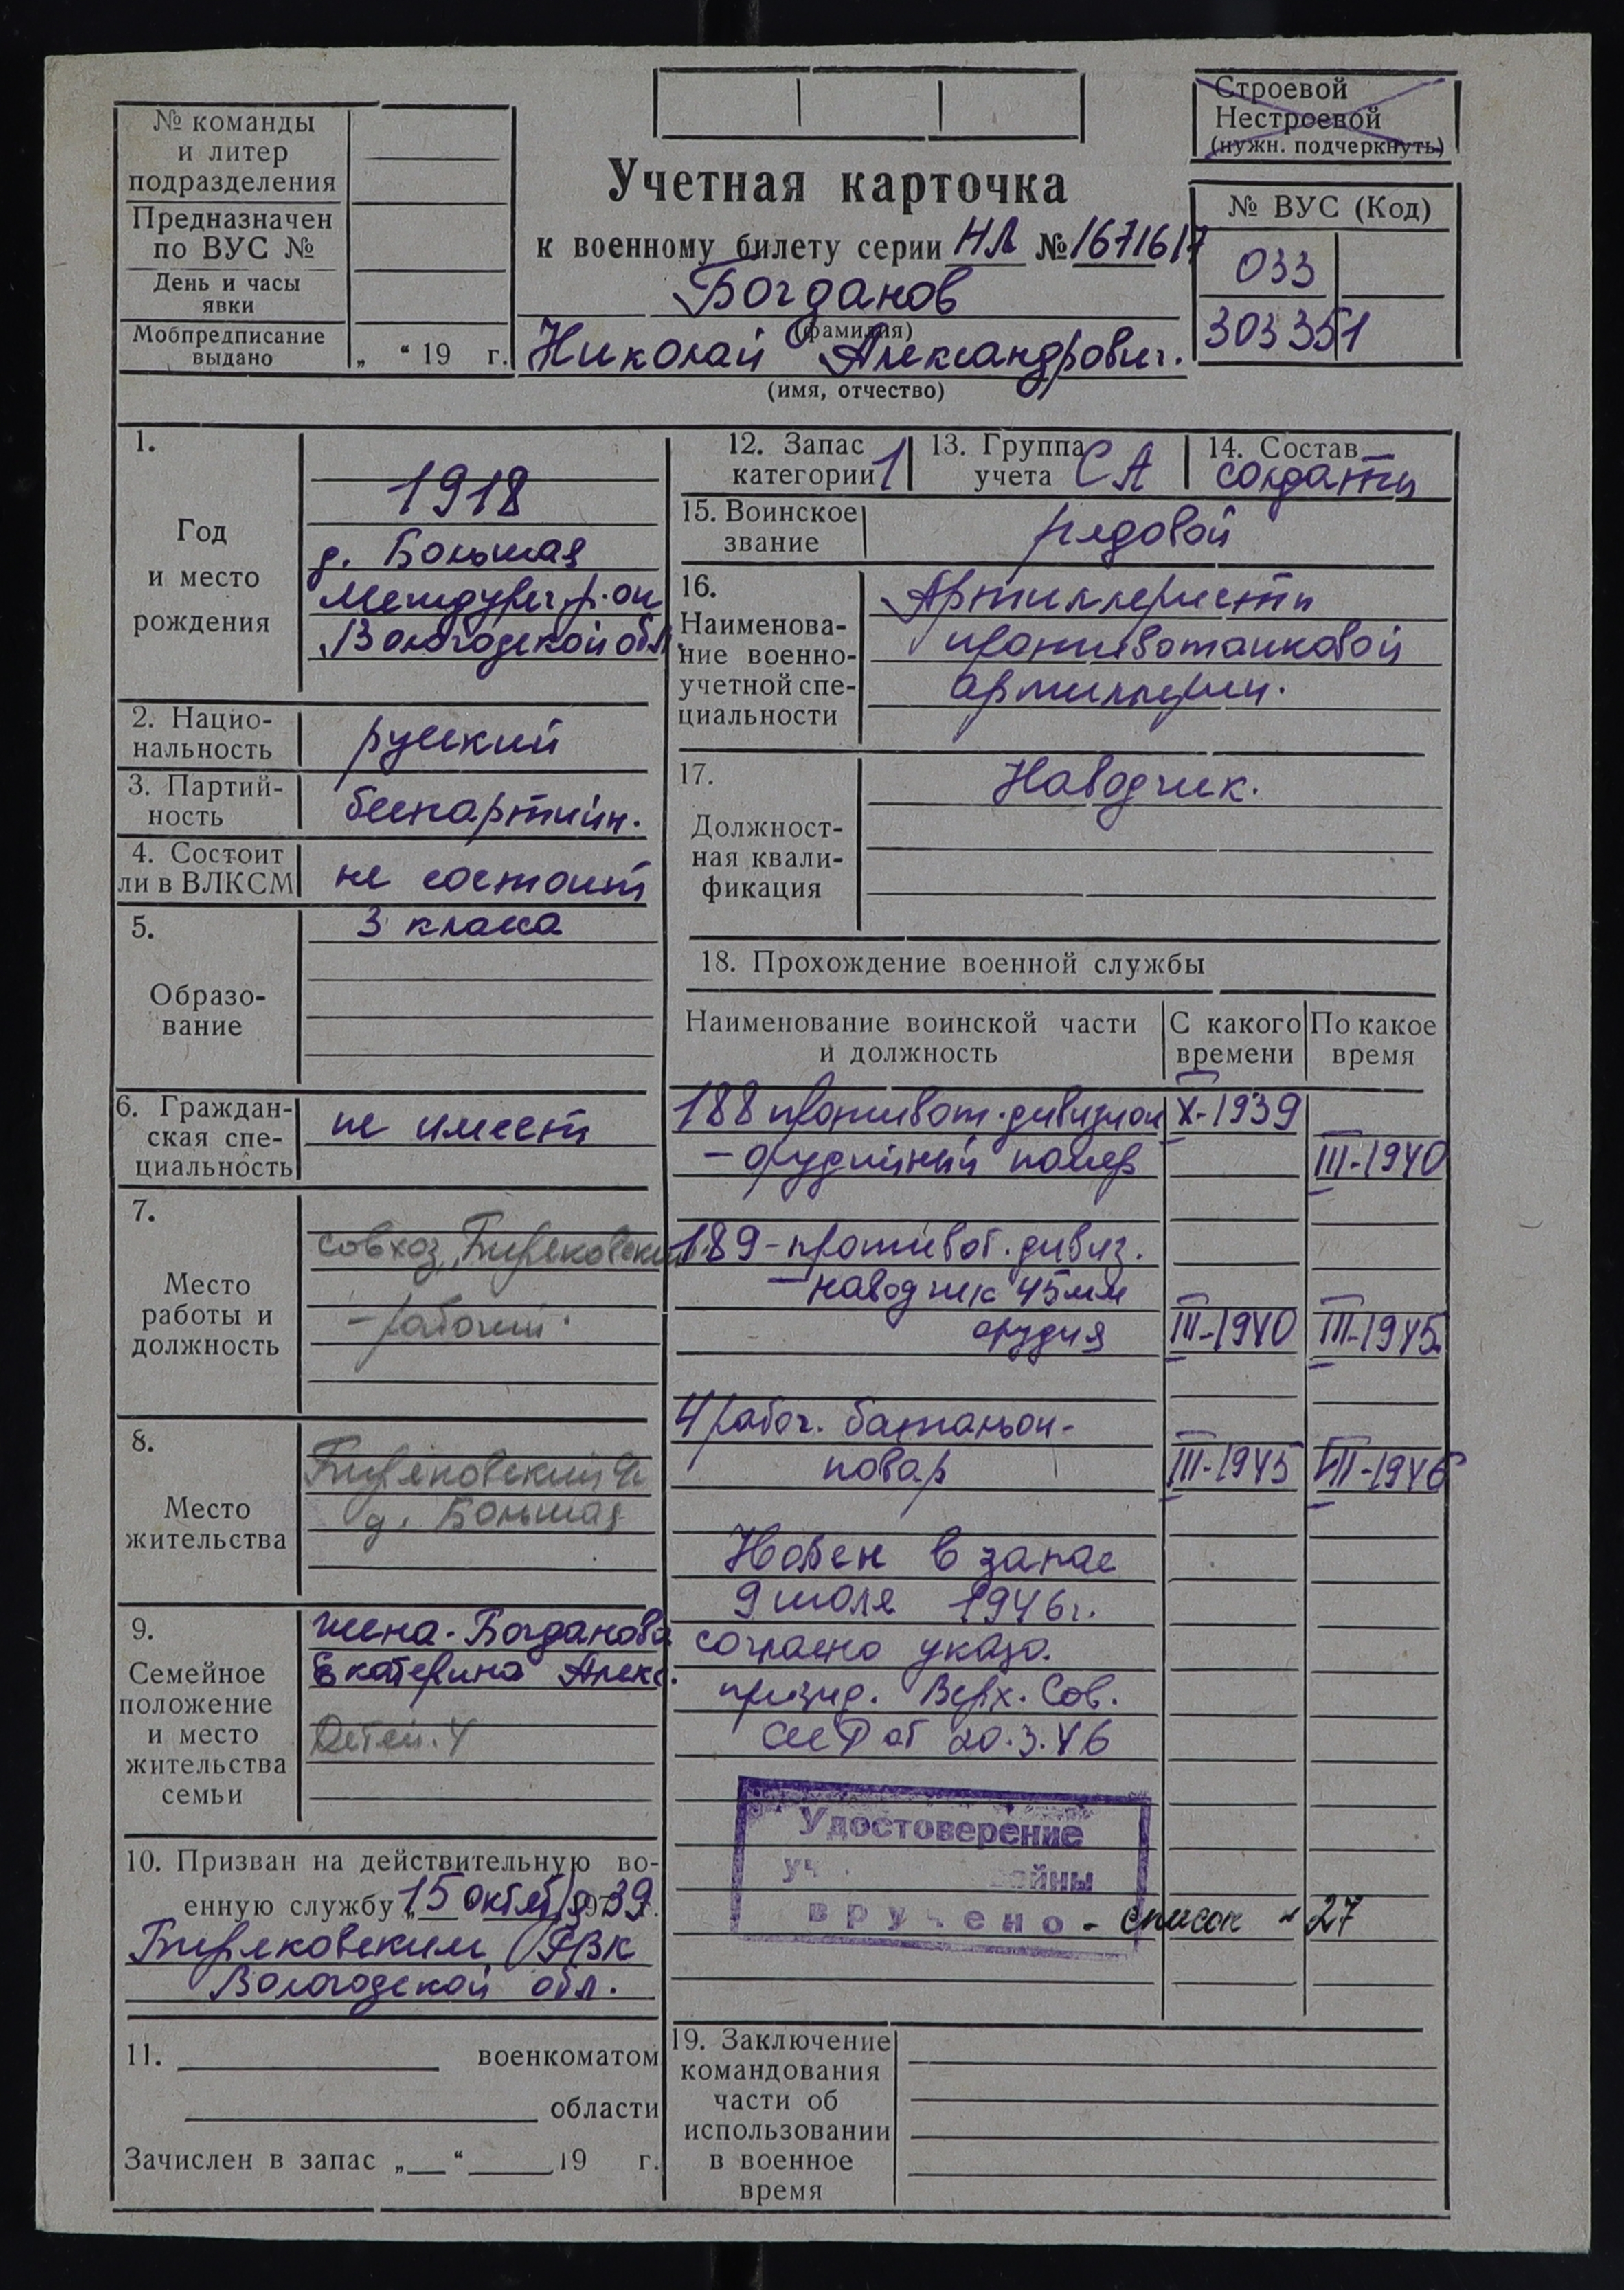 Строевой
Нестроевой
(нужн. подчеркнуть)
№ команды
и литер
подразделения
Предназначен
по ВУС №
День и часы
явки
Мобпредписание
выдано
„ “ 19 г.
Учетная карточка
к военному билету серии НЛ № 1671617
Богданов
(фамилия)
Николай Александрович.
(имя, отчество)
№ ВУС (Код)
033
303351
1.
Год
и место
рождения
1918
д. Большая
Междуреч. р-он
Вологодской обл.
2. Нацио-
нальность
русский
3. Партий-
ность
беспартийн.
4. Состоит
ли в ВЛКСМ
не состоит
5.
Образо-
вание
3 класса
6. Граждан-
ская спе-
циальность
не имеет
7.
Место
работы и
должность
совхоз „Бирековский"
- рабочий.
8.
Место
жительства
д. Большая
9.
Семейное
положение
и место
жительства
семьи
жена - Богданова
Екатерина Алекс.
Детей. 4
10. Призван на действительную во-
енную службу „15 октября 1939 г.
Биряковским РВК
Вологодской обл.
11. военкоматом
области
Зачислен в запас „ “ 19 г.
12. Запас
категории 1
13. Группа
учета СА
14. Состав
солдаты
15. Воинское
звание
рядовой
16.
Наименова-
ние военно-
учетной спе-
циальности
Артиллеристы
противотанковой
артиллерии.
17.
Должност-
ная квали-
фикация
Наводчик.
18. Прохождение военной службы
Наименование воинской части
и должность
С какого
времени
По какое
время
188 противот. дивизион X-1939
- орудийный номер III-1940
189 - противот. дивиз.
- наводчик 45мм
орудия III-1940 III-1945
4 рабоч. батальон -
повар III-1945 VII-1946
в запас
9 июля 1946 г.
согласно указа.
презид. Верх. Сов.
СССР от 20.3.46
Удостоверение
войны
вручено - список 27
19. Заключение
командования
части об
использовании
в военное
время